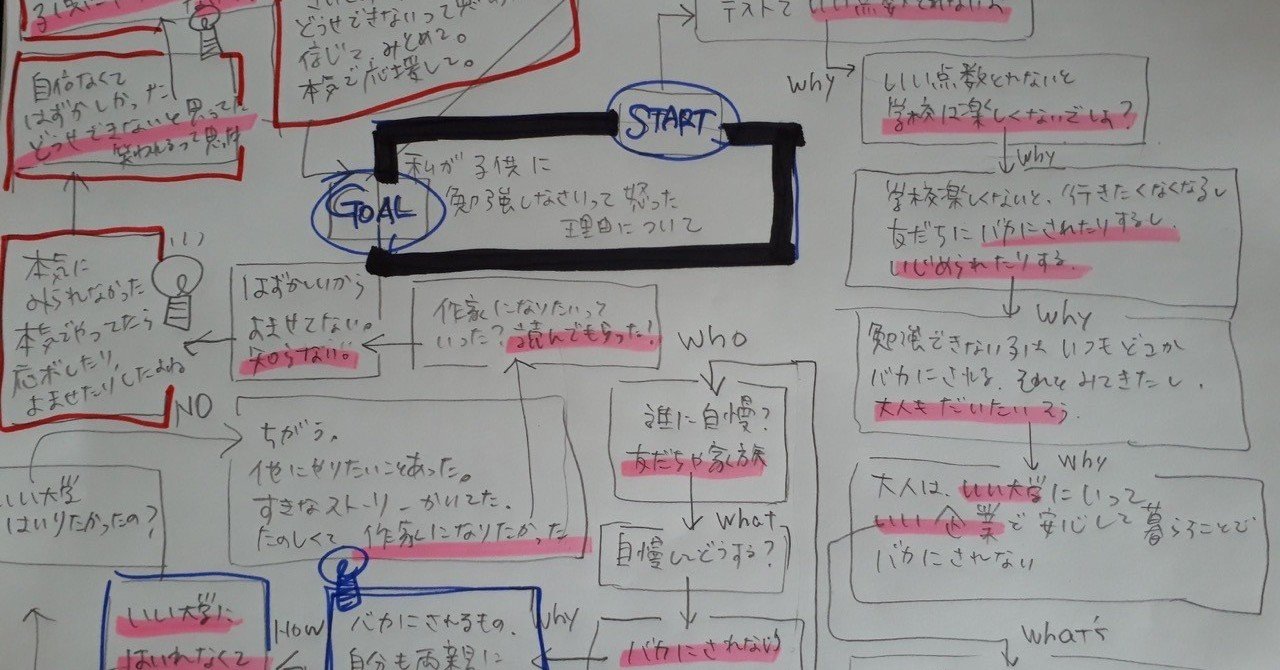 どうせできないって思
信じて、みとめて。
本気で応援して。
自信なくて
はずかしかった
どうせできないと思ってた
笑われるって思
START
GOAL
私が子供に
勉強しなさいって怒った
理由について
テストで いい点数とれないよ
Why
いい点数とれないと
学校は楽しくないでしょ?
Why
学校楽しくないと、行きたくなくなるし
友だちにバカにされたりするし
いじめられたりする。
Why
勉強できない子は いつもどこか
バカにされる、それをみてきたし、
大人もだいたいそう。
Why
大人は、いい大学にいって
いい企業で安心して暮らことで
バカにされない
What's
本気に
みられなかった
本気でやってたら
応ボしたり、
よませたりしたよね
NO
はずかしいから
よませてない。
知らない。
作家になりたいって
いった?読んでもらった!
WHO
誰に自慢?
友だちや家族
What
自慢してどうする?
バカにされない
ちがう。
他にやりたいことあった。
すきなストーリーかいてた。
たのしくて 作家になりたかった
いい大学
はいりたかったの?
いい大学に
はいれなくて
HOW
バカにされるもの、
自分も両親に
Why